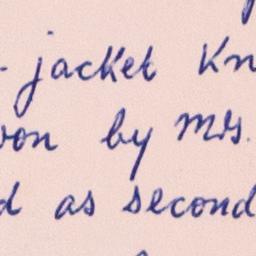 - jacket Kn
won by Mrs.
d as second